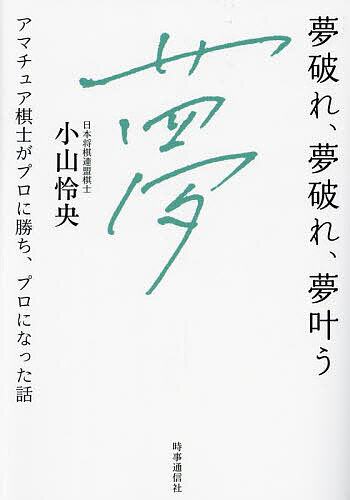 夢破れ、夢破れ、夢叶う
夢
日本将棋連盟棋士
小山怜央
アマチュア棋士がプロに勝ち、プロになった話
時事通信社